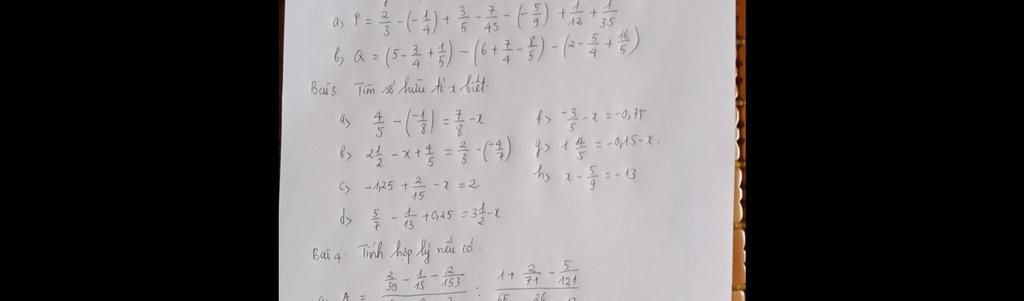 a) P = 2/3 - (-1/4) + 3/5 - 7/45 - (-5/9) + 1/12 + 1/35
b) Q = (5 - 3/4 + 1/5) - (6 + 7/4 - 8/5) - (2 - 5/4 + 16/5)
Bài 3: Tìm số hữu tỉ x biết.
a) 4/5 - (-1/8) = 7/8 - x
f) -3/5 - x = -0,75
b) 2 1/2 - x + 4/5 = 2/3 - (-4/7)
g) 1 4/5 = -0,15 - x.
c) -1,25 + 2/15 - x = 2
h) x - 5/9 = -13
d) 5/7 - 1/13 + 0,25 = 3 1/2 - x
Bài 4. Tính hợp lý nếu có.
2/39 - 1/15 - 2/153 : 1 + 2/71 - 5/121
A =